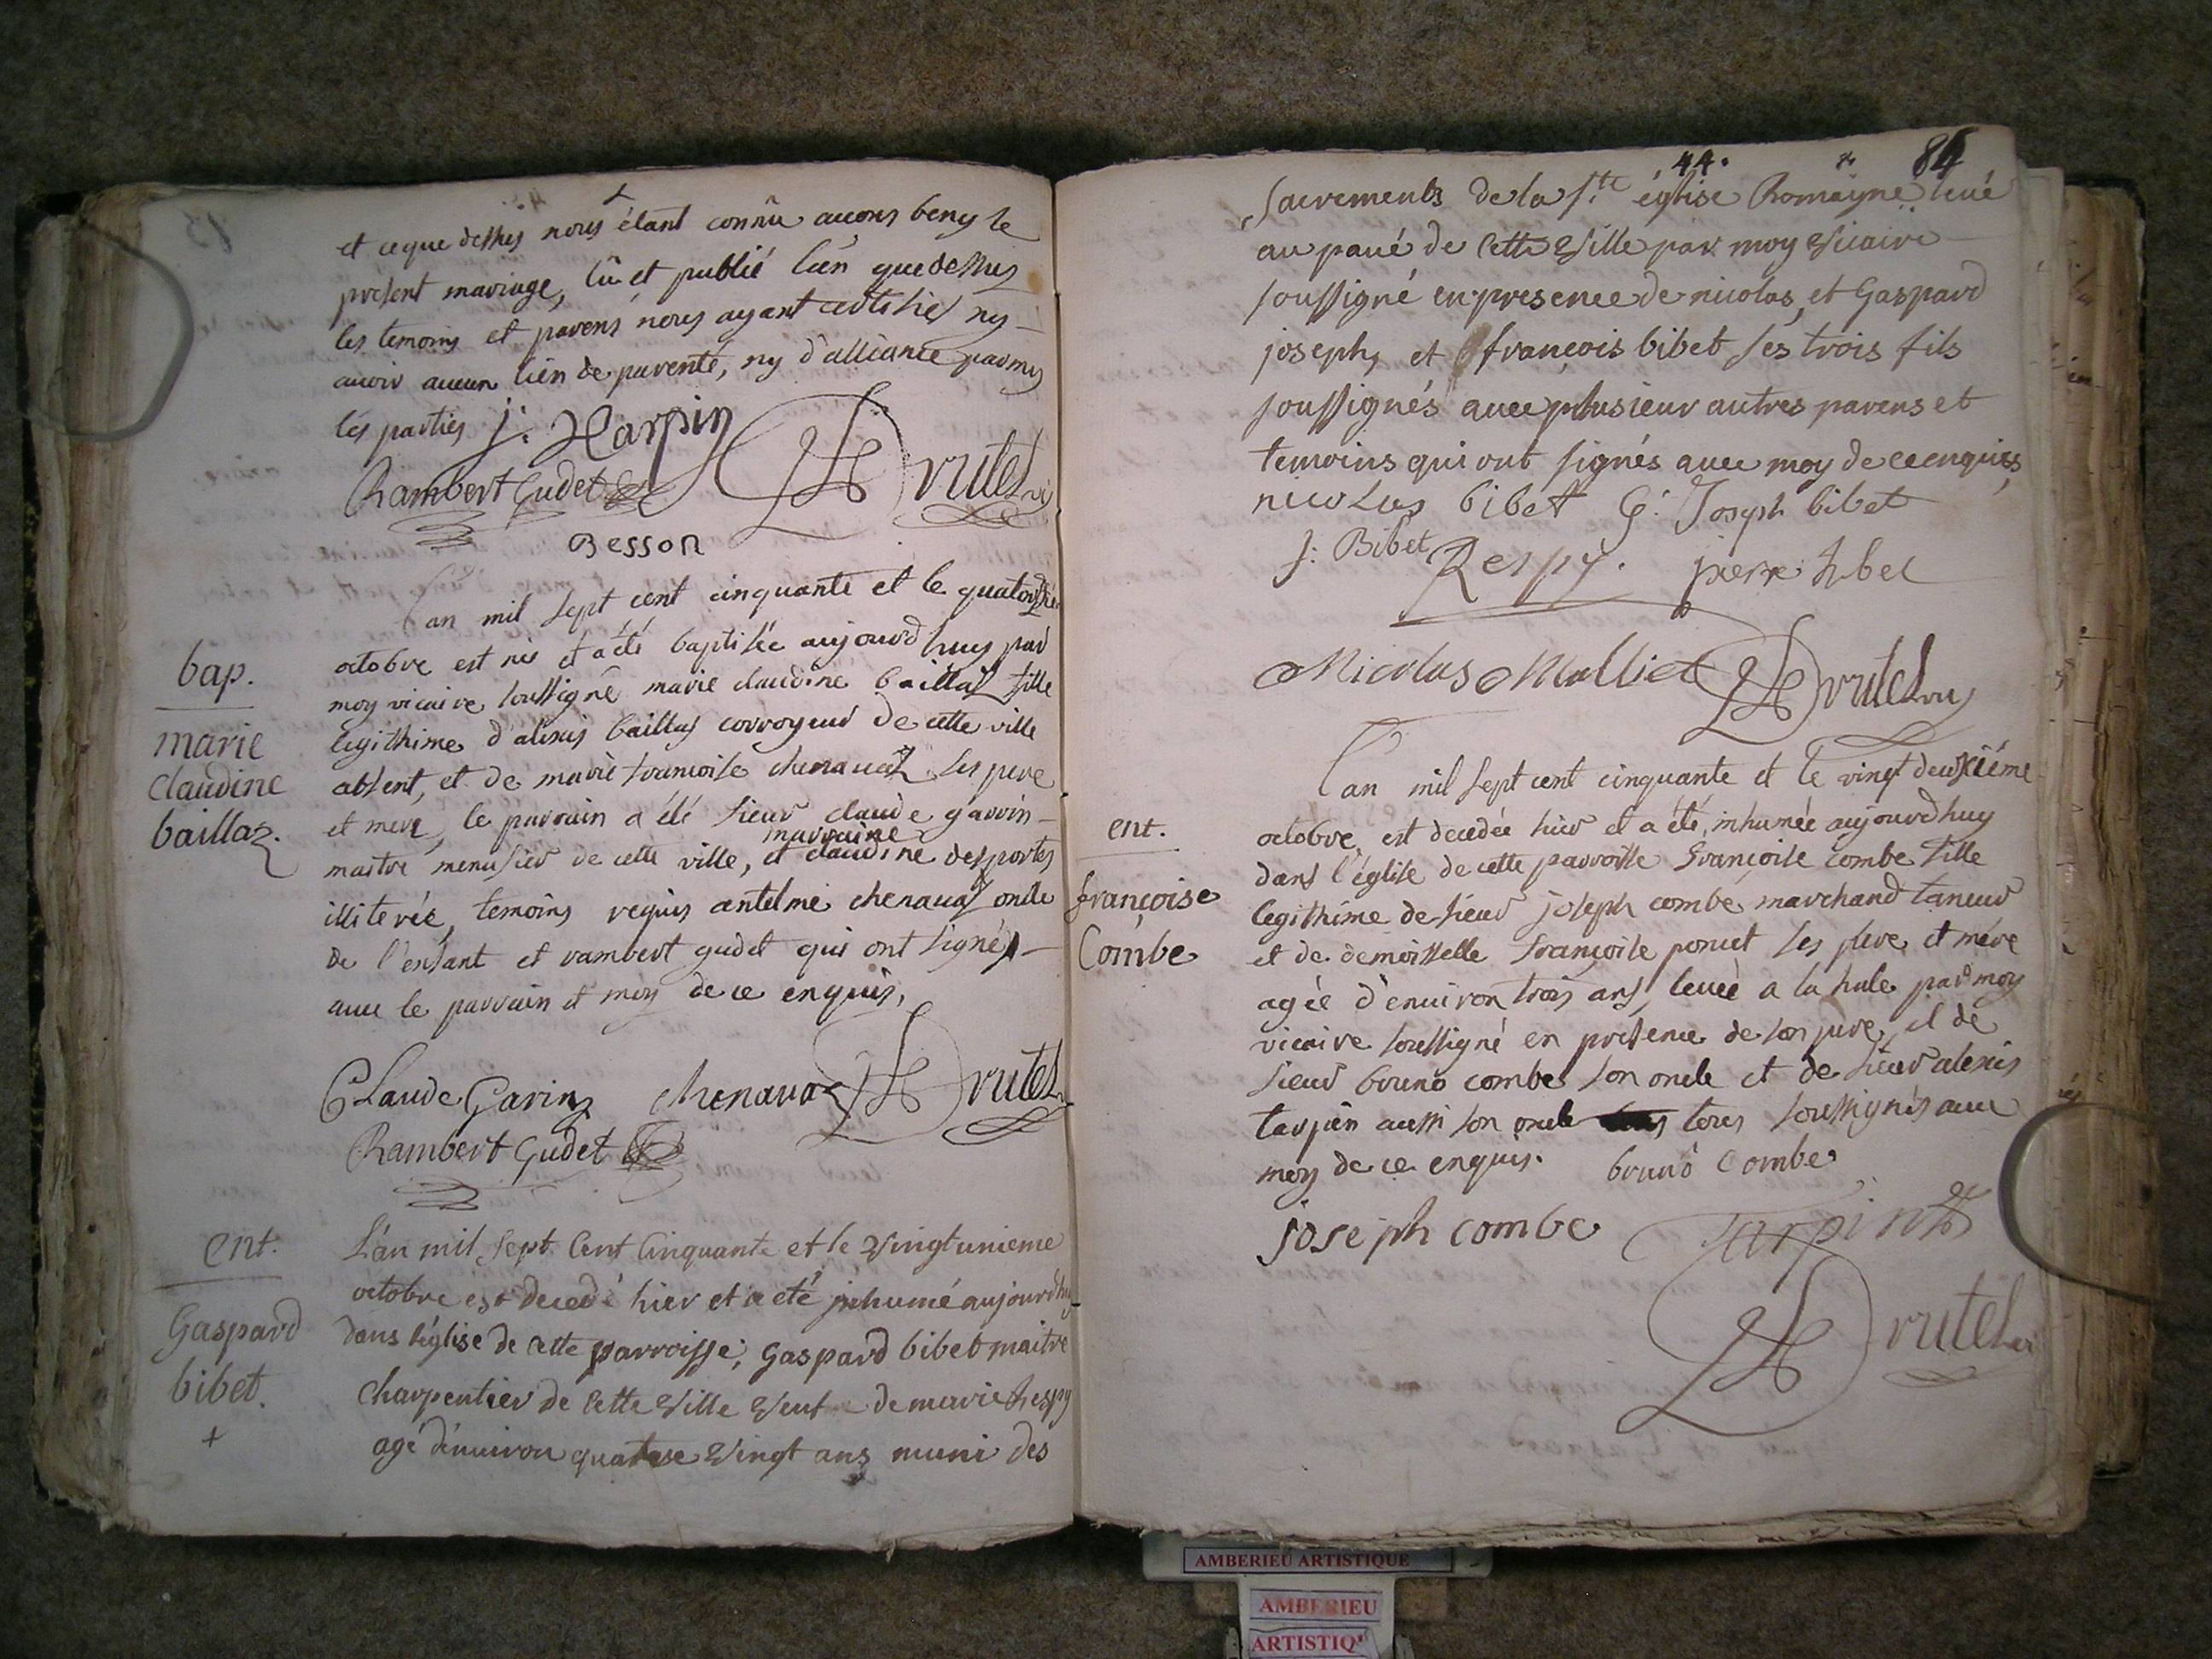 et ce que dessus nous étant connû auons beny le
present mariage, lû et publié lien que dessus
les temoins et parens nous ayant certifiés ny
auoir aucun lien de parenté, ny d'alliance parmy
les parties J. Harpin
Rambert Gudet Drutel vi
Besson
bap.
marie
claudine
baillaz.
L'an mil sept cent cinquante et le quatorzie
octobre est née et a été baptisée aujourdhuy par
moy vicaire soussigné marie claudine baillaz fille
legithime d'alexis baillaz corroyeur de cette ville
absent, et de marie francoise chenauaz ses pere
et mere, le parrain a été sieur claude garrin
marraine
maitre menusier de cette ville, et claudine desportes
illiterée, temoins requis antelme chenauaz oncle
de l'enfant et rambert gudet qui ont signés
auec le parrain et moy de ce enquis,
Claude Garin chenauaz Drutel
Rambert Gudet
ent.
Gaspard
bibet.
+
L'an mil sept Cent Cinquante et le vingtunieme
octobre est decedé hier et a eté inhumé aujourdhuy
dans l'église de cette parroisse, Gaspard bibet maitre
Charpentier de Cette Ville Veuf de marie hespy
agé d'enuiron quatre Vingt ans muni des
44. 84
sacrements de la Ste église Romayne leué
au paué de Cette Ville par moy Vicaire
soussigné en presence de nicolas, et Gaspard
joseph, et françois bibet ses trois fils
soussignés auec plusieur autres parens et
temoins qui ont signés auec moy de ce enquis,
nicolas bibet G. Joseph bibet
f. Bibet Respy. pierre
Nicolas Molliet Drutel vi
ent.
françoise
Combe
L'an mil sept cent cinquante et le vingt deuxiéme
octobre, est decedée hier et a été, inhumée aujourdhuy
dans l'église de cette parroisse Françoise combe fille
legithime de sieur joseph combe marchand taneur
et de demoiselle Françoise poncet ses pere et mere
agée d'enuiron trois ans, leuée a la hale par moy
vicaire soussigné en presence de son pere, et de
sieur bruno combe son oncle et de sieur alexis
tarpin aussi son oncle tous soussignés auec
moy de ce enquis. bruno Combe
joseph combe Tarpin
Drutel vi
AMBERIEU ARTISTIQUE
AMBERIEU
ARTISTIQ